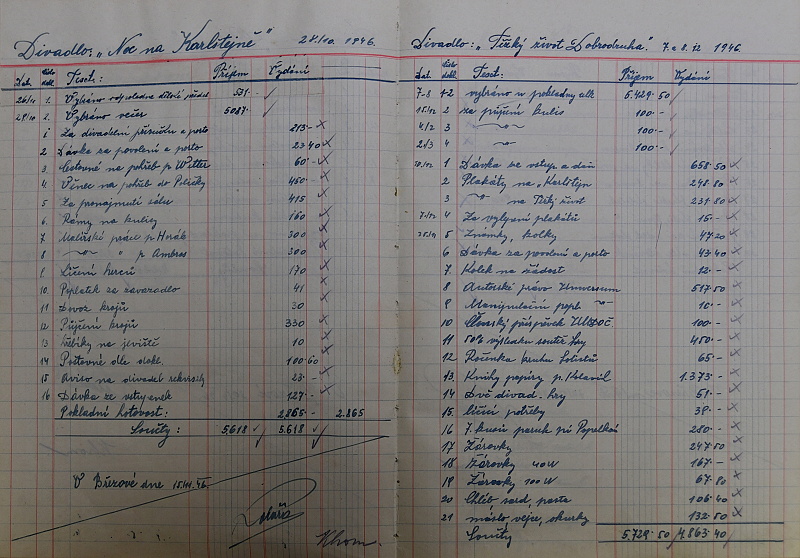 Divadlo: „Noc na Karlštejně" 28/10. 1946.
Dat. číslo dokl. Text: Příjem Vydání
26/10 1. Vybráno 531.-
28/10 2. Vybráno večer 5087.-
1 Za divadelní příručku a porto 213.-
2 Dávka za povolení a porto 23.40
3 Cestovné na potřeb p. Witter 60.-
4 Věnec na pohřeb do Poličky 450.-
5 Za pronajmutí sálu 415
6 Rámy na kulisy 160
7 Malířské práce p. Horák 300
8 -"- -"- p. Ambros 300
9 Líčení herců 170
10 Poplatek za zavazadlo 41
11 Dovoz krojů 30
12 Půjčení krojů 330
13 Hřebíky na jeviště 10
14 Poštovné dle dokl. 100.60
15 Aviso na divadel. rekvisity 23.-
16 Dávka ze vstupenek 127.-
Pokladní hotovost: 2.865.- 2.865
Součty: 5.618 5.618
V Březové dne 15.XI.46.
Divadlo: „Těžký život Dobrodruha." 7. a 8. 12 1946.
Dat. číslo dokl. Text: Příjem Vydání
7-8 1-2 vybráno v pokladny celk 5.429.50
15/12 2 za půjčení kulis 100.-
4/2 3 -"- 100.-
21/3 4 -"- 100.-
1 Dávka ze vstup. a daň 658.50
2 Plakáty na „Karlštejn 248.80
3 -"- na Těžký život 231.80
7/12 4 Za vylepení plakátů 15.-
5 Známky, kolky 47.20
6 Dávka za povolení a porto 43.40
7 Kolek na žádost 12.-
8 Autorské právo Universum 517.50
9 Manipulační popl. -"- 10.-
10 Členský příspěvek 100.-
11 50% výsledku 450.-
12 Ročenka kruhu 65.-
13. Knihy papíry p. 1.373.-
14 Dvě divad. hry 51.-
15. líčící potřeby 38.-
16 7 kusů paruk pí Popelková 280.-
17 Žárovky 247.50
18 Žárovky 40W 167.-
19 Žárovky 100W 67.80
20 Chléb sard, pasta 106.40
21 máslo, vejce, okurky 132.50
Součty 5.729.50 4.863.40